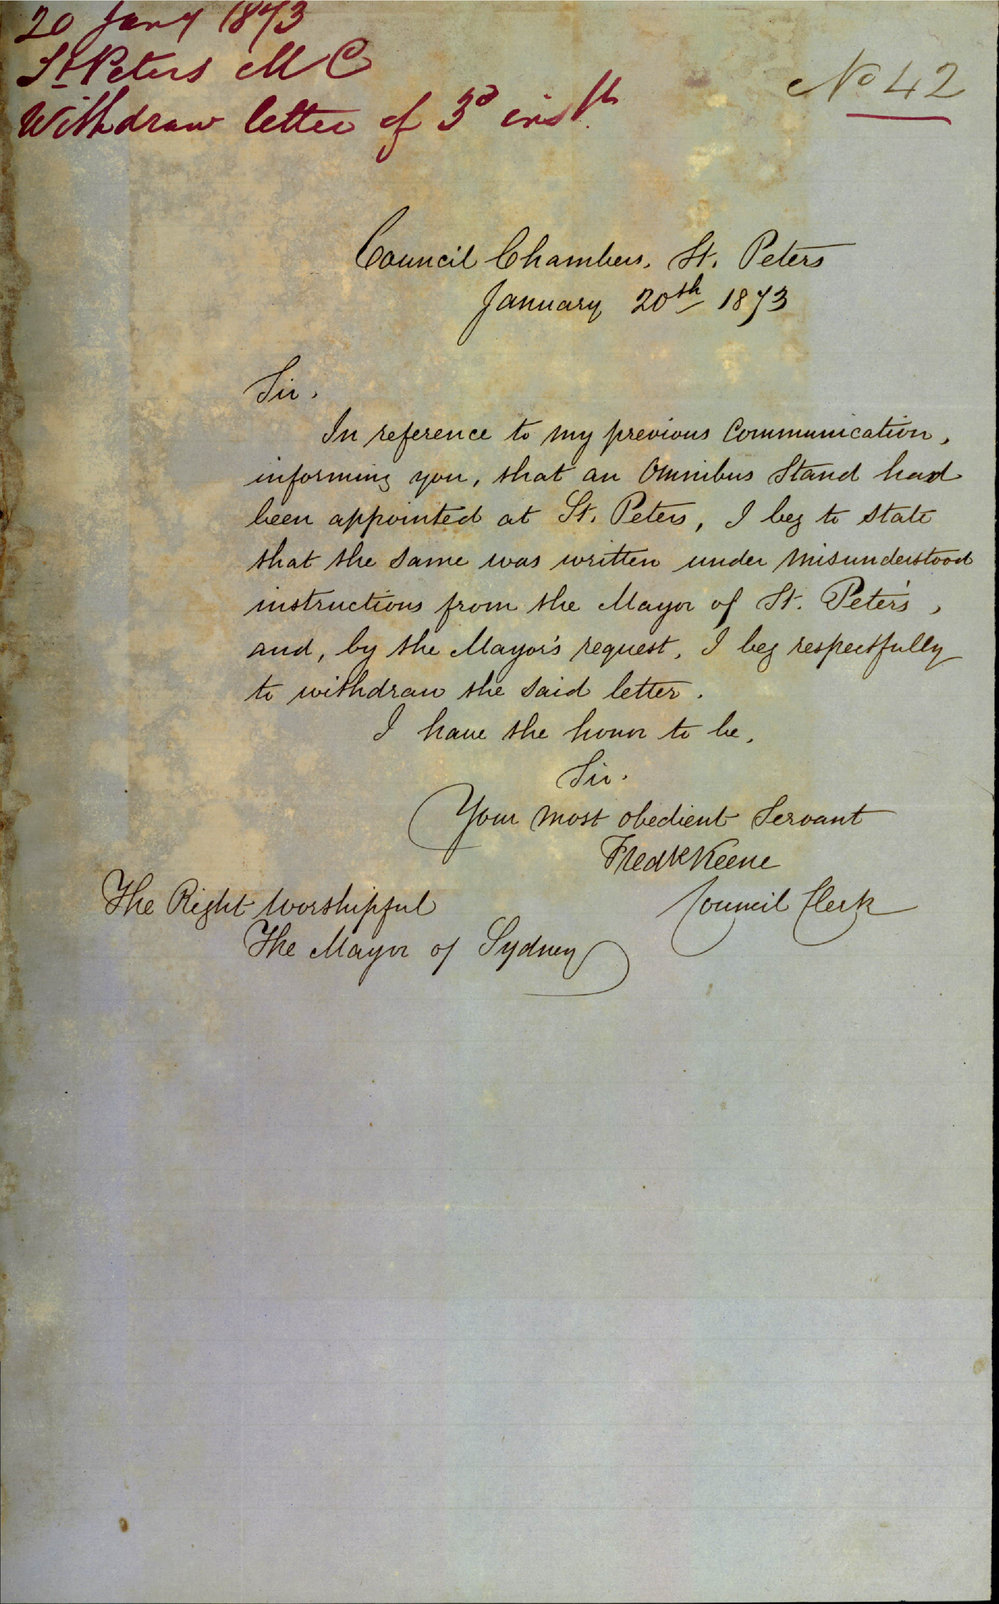 20 Jany 1873
St Peters M C
Withdraw letter of 3d inst.
No 42
Council Chambers, St. Peters
January 20th 1873
Sir.
In reference to my previous Communication,
informing you, that an Omnibus Stand had
been appointed at St. Peters, I beg to state
that the same was written under misunderstood
instructions from the Mayor of St. Peter's,
and, by the Mayor's request, I beg respectfully
to withdraw the said letter.
I have the honor to be,
Sir.
Your most obedient Servant
Fredk Keene
Council Clerk
The Right Worshipful
The Mayor of Sydney